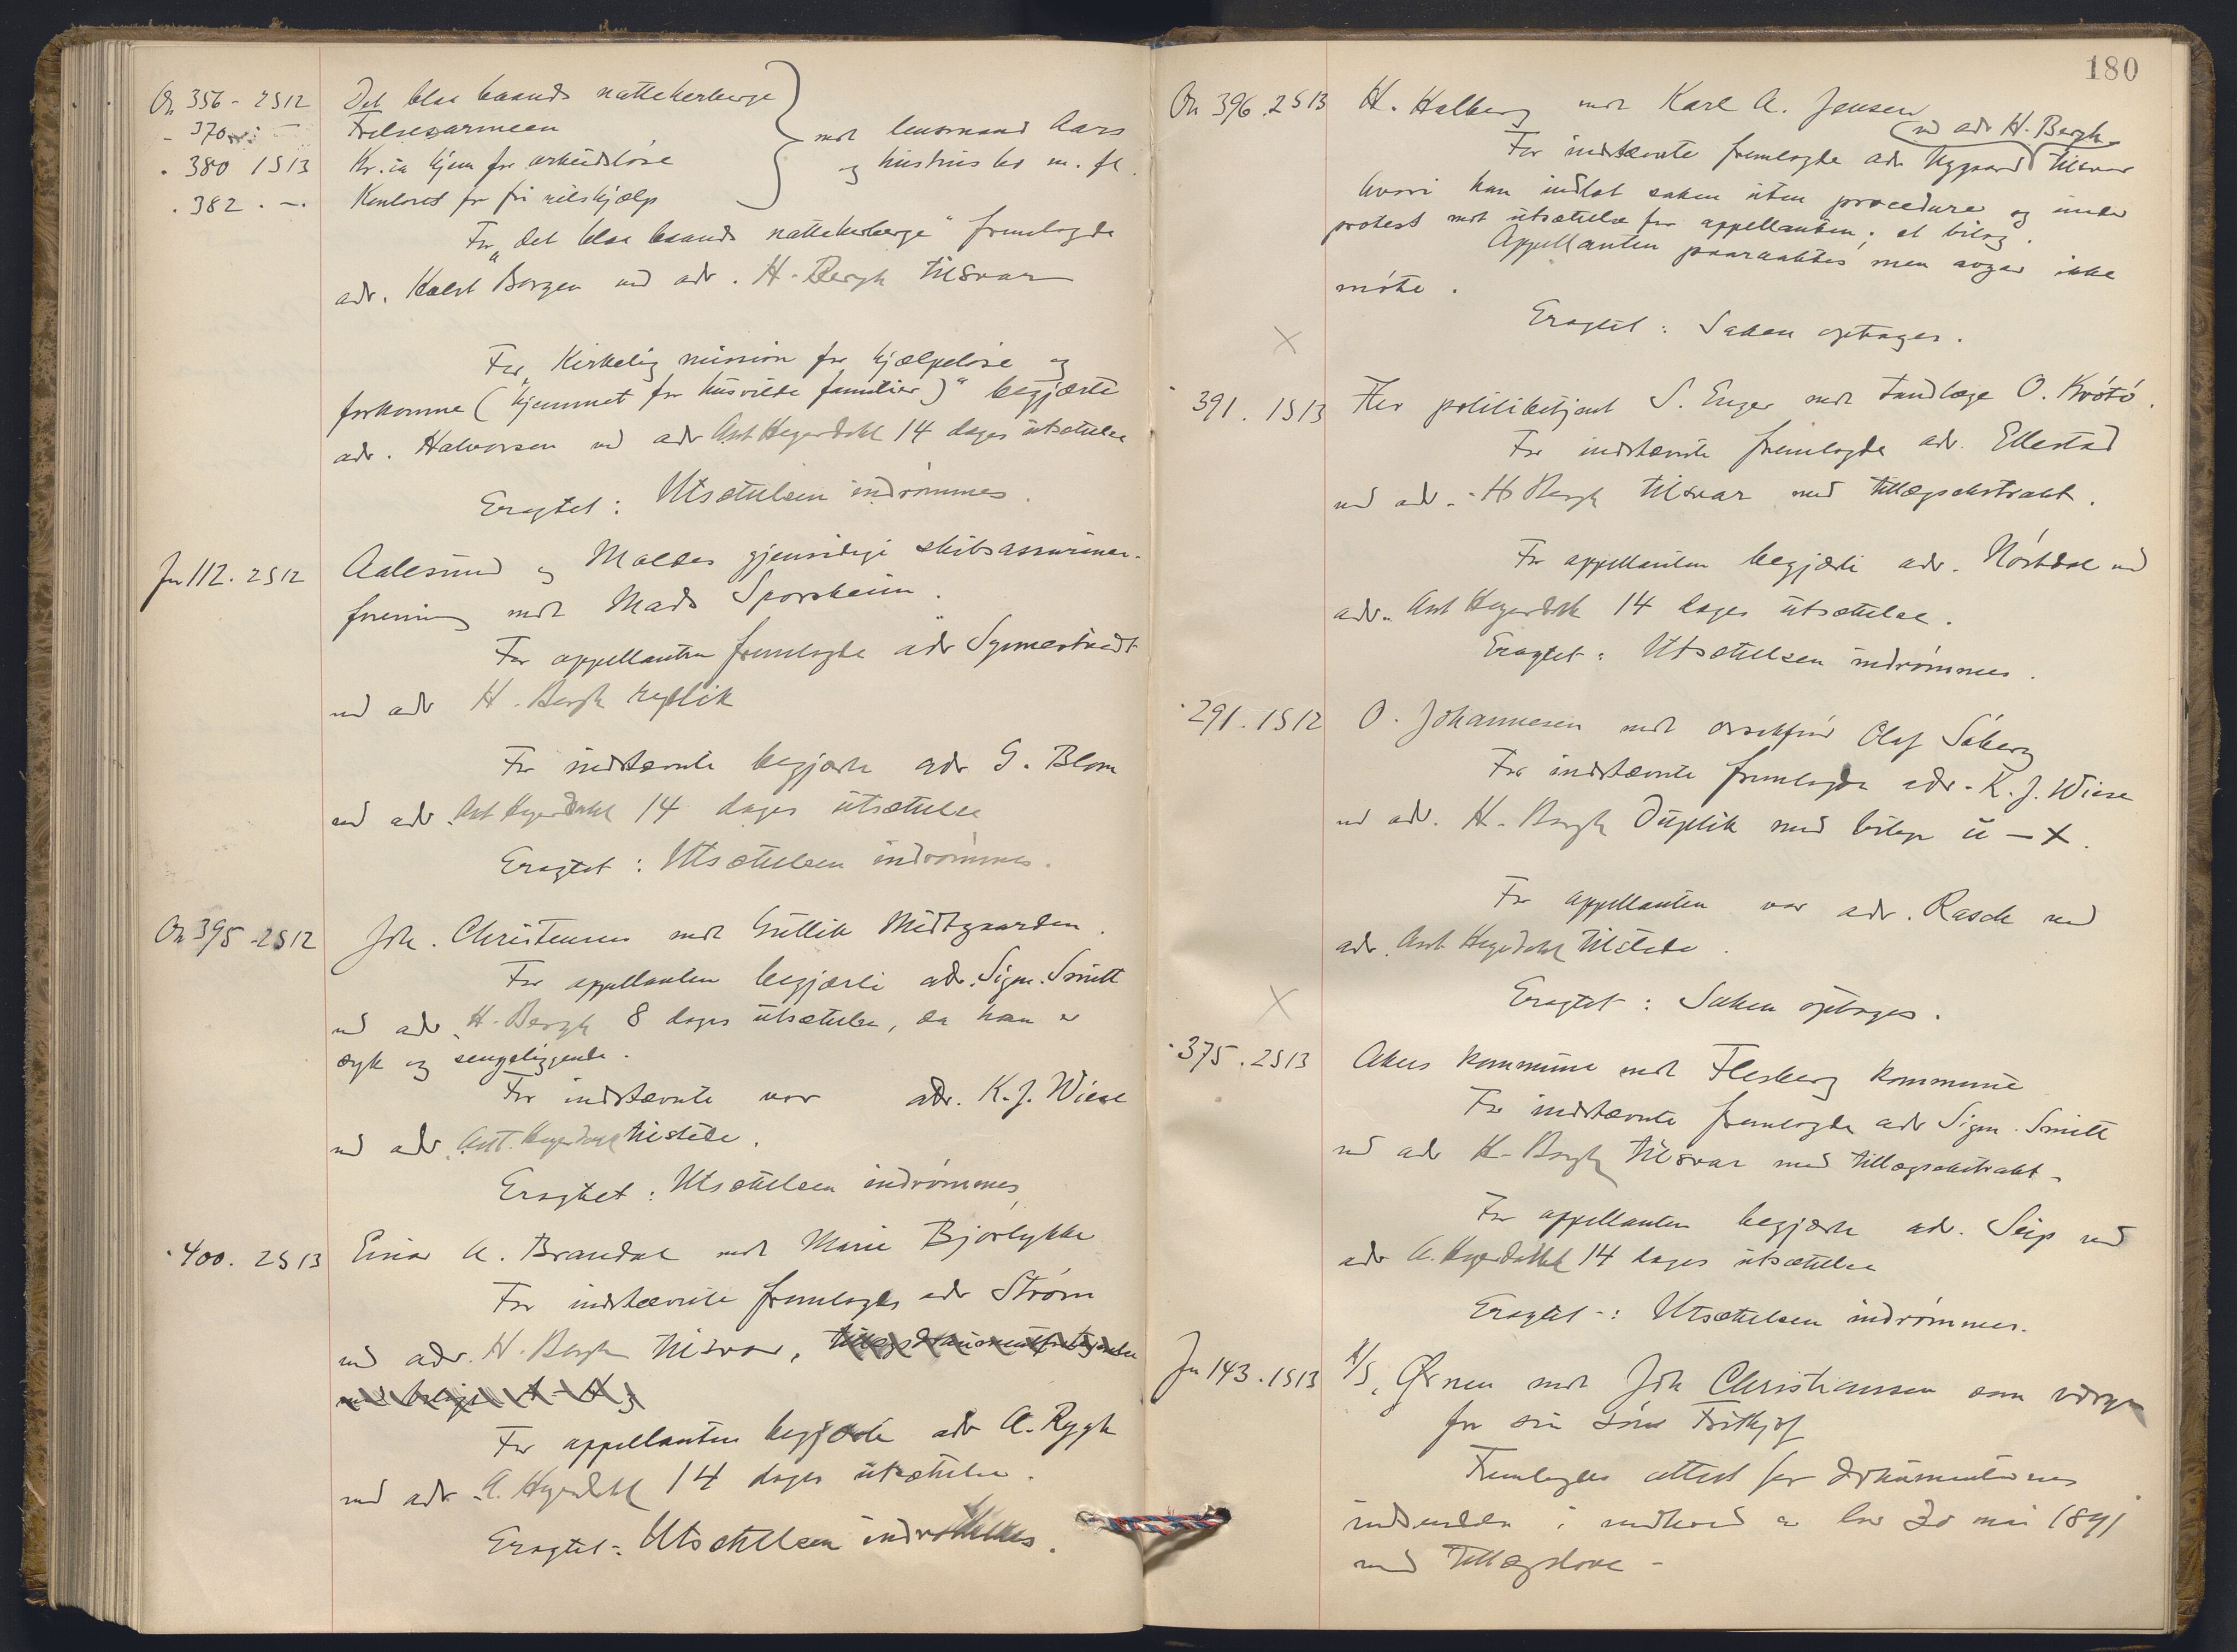 On 356 - 2S12 Det blaa baands natteherberge
- 370 - - Frelsesarmeen
- 380 1S13 Kr.ia hjem for arbeidsløse
mot lensmand Aars
og hustrus bo m. fl.
. 382 . - . Kontoret for fri retshjælp
For „Det blaa baands natteherberge" fremlagde
adv. Borgen ved adv. H. Bergh tilsvar
For „Kirkelig mission for hjælpeløse og
forkomne (hjemmet for husvilde familier)" begjærte
adv. Halvorsen ved adv Ant Heyerdahl 14 dages utsættelse
Eragtet : Utsættelsen indrømmes.
Jn 112. 2S12 Aalesund og Moldes gjensidige skibsassurance-
forening mot Mads Sporsheim.
For appellanten fremlagde adv Synnestvedt
ved adv H. Bergh replik
For indstævnte begjærte adv G. Blom
ved adv. Ant Heyerdahl 14 dages utsættelse
Eragtet : Utsættelsen indrømmes.
On 395 - 2S12 Joh. Christensen mot Gullik Midtgaarden.
For appellanten begjærte adv. Sigm. Smitt
ved adv. H. Bergh 8 dages utsættelse, da han er
syk og sengeliggende.
For indstævnte var adv. K. J. Wiese
ved adv. Ant. Heyerdahl tilstede.
Eragtet : Utsættelsen indrømmes
. 400. 2S13 Einar A. Brandal mot Marie Bjørlykke
For indstævnte fremlagdes adv Strøm
ved adv. H. Bergh tilsvar,
For appellanten begjærte adv A. Rygh
ved adv. A. Heyerdahl 14 dages utsættelse.
Eragtet : Utsættelsen indrømmes.
180
On 396. 2S13 H. Halberg mot Karl A. Jensen
ved adv H. Bergh
For indstævnte fremlagde adv Nygaard tilsvar
hvori han indlot saken uten procedure og under
protest mot utsættelse for appellanten; et bilag.
Appellanten paaraaktes, men avgav ikke
møte.
Eragtet : Saken optages.
X
. 391. 1S13 Fhv politibetjent S. Enger mot tandlæge O. Kvötö.
For indstævnte fremlagde adv. Ellestad
ved adv. H Bergh tilsvar med tillægsekstrakt.
For appellanten begjærte adv. Nørdal ved
adv. Ant Heyerdahl 14 dages utsættelse.
Eragtet : Utsættelsen indrømmes.
. 291. 1S12 O. Johannesen mot Olaf Söberg
For indstævnte fremlagde adv. K. J. Wiese
ved adv. H. Bergh Duplik med bilage u - x.
For appellanten var adv. Rasch ved
adv. Ant Heyerdahl tilstede.
Eragtet : Saken optages.
X
. 375. 2S13 Akers kommune mot Flesberg kommune
For indstævnte fremlagde adv Sigm. Smitt
ved adv H. Bergh tilsvar med tillægsekstrakt.
For appellanten begjærte adv. Seip ved
adv A. Heyerdahl 14 dages utsættelse
Eragtet : Utsættelsen indrømmes.
Jn 143. 1S13 A/S, Ørnen mot Joh Christiansen som værge
for sin søn Fritjof
Fremlagdes attest for dokumenternes
indsendelse i medhold av lov 20 mai 1891
med Tillægslove -